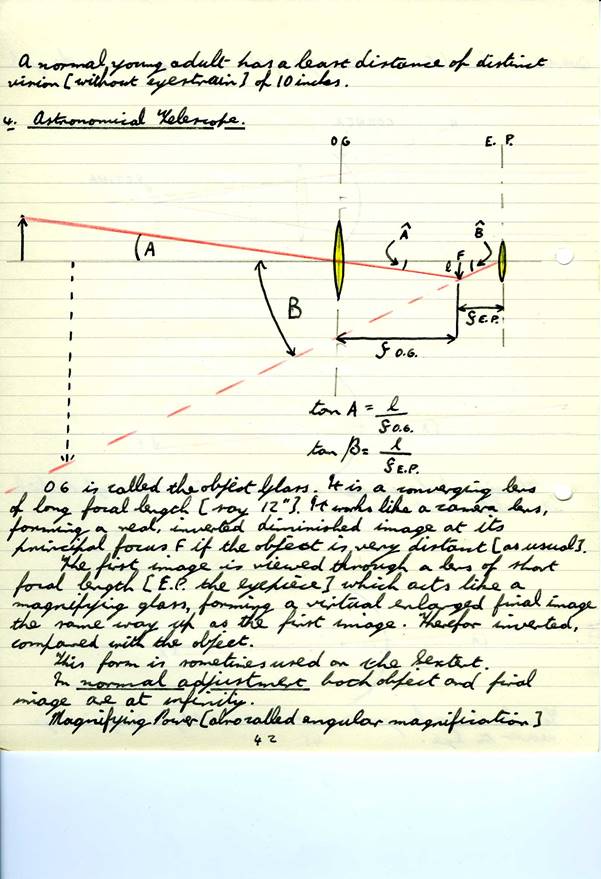 A normal young adult has a least distance of distinct
vision [without eyestrain] of 10 inches.
4. Astronomical Telescope.
OG E. P.
A
Â B̂
l F
B
f E.P.
f O.G.
tan A = l / f O.G.
tan B = l / f E.P.
OG is called the object Glass. It is a converging lens
of long focal length [say 12"]. It works like a camera lens,
forming a real, inverted diminished image at its
principal focus F if the object is very distant [as usual].
The first image is viewed through a lens of short
focal length [E.P. the eyepiece] which acts like a
magnifying glass, forming a virtual enlarged final image
the same way up as the first image. Therefor inverted,
compared with the object.
This form is sometimes used on the Sextent.
In normal adjustment both object and final
image are at infinity.
Magnifying Power [also called angular magnification]
42